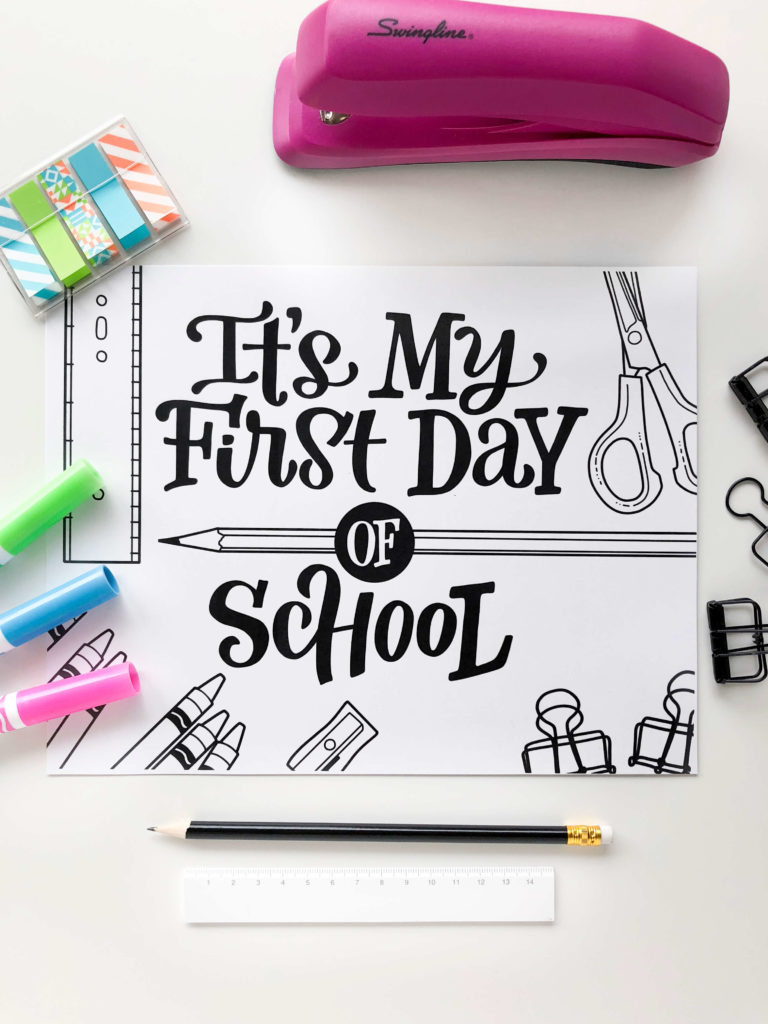 Swingline®
It's My
First Day
OF
School
1 2 3 4 5 6 7 8 9 10 11 12 13 14